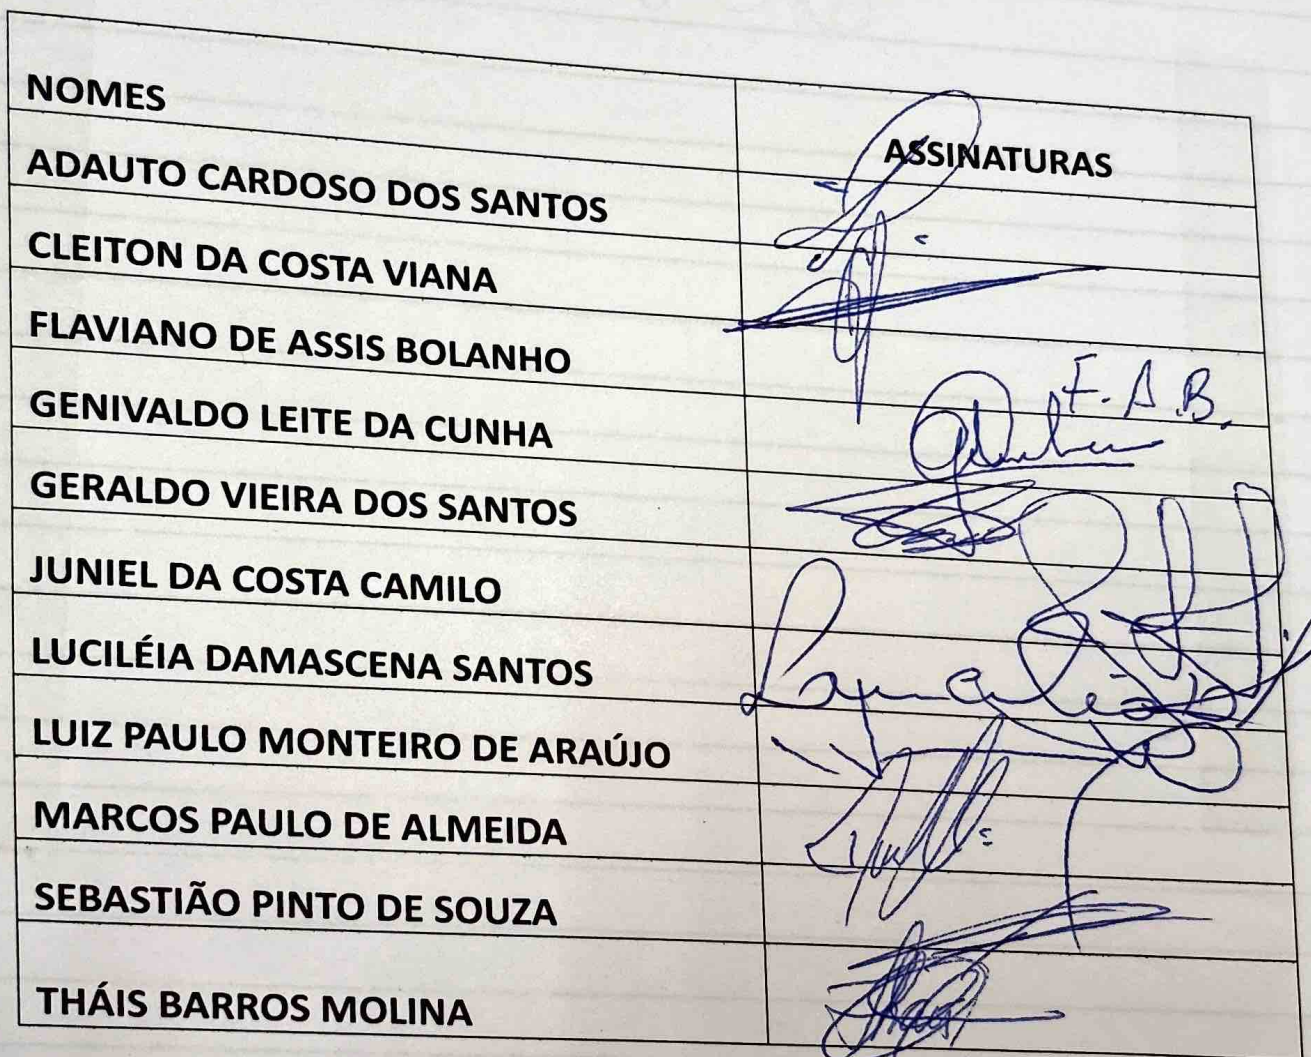 NOMES
ASSINATURAS
ADAUTO CARDOSO DOS SANTOS
CLEITON DA COSTA VIANA
FLAVIANO DE ASSIS BOLANHO
F. A. B.
GENIVALDO LEITE DA CUNHA
GERALDO VIEIRA DOS SANTOS
JUNIEL DA COSTA CAMILO
LUCILÉIA DAMASCENA SANTOS
LUIZ PAULO MONTEIRO DE ARAÚJO
MARCOS PAULO DE ALMEIDA
SEBASTIÃO PINTO DE SOUZA
THÁIS BARROS MOLINA